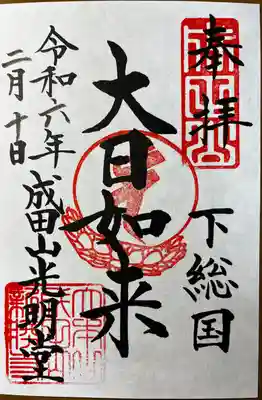 奉拝
下総国
大日如来
成田山光明堂
令和六年
二月十日